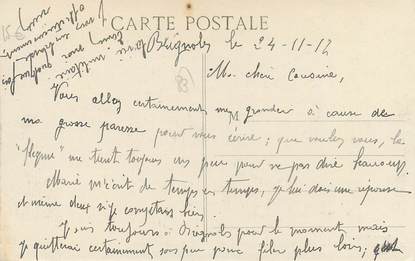 CARTE POSTALE
Brignoles le 24-11-12
Ma chère Cousine,
Vous allez certainement me gronder à cause de
ma grosse paresse pour vous écrire; que voulez vous, la
"flegme" me tient toujours un peu pour ne pas dire beaucoup.
Marie m'écrit de temps en temps, je lui dois une réponse
et même deux si je comptais bien.
Je suis toujours à Brignoles pour le moment, mais
je quitterai certainement sous peu pour filer plus loin;